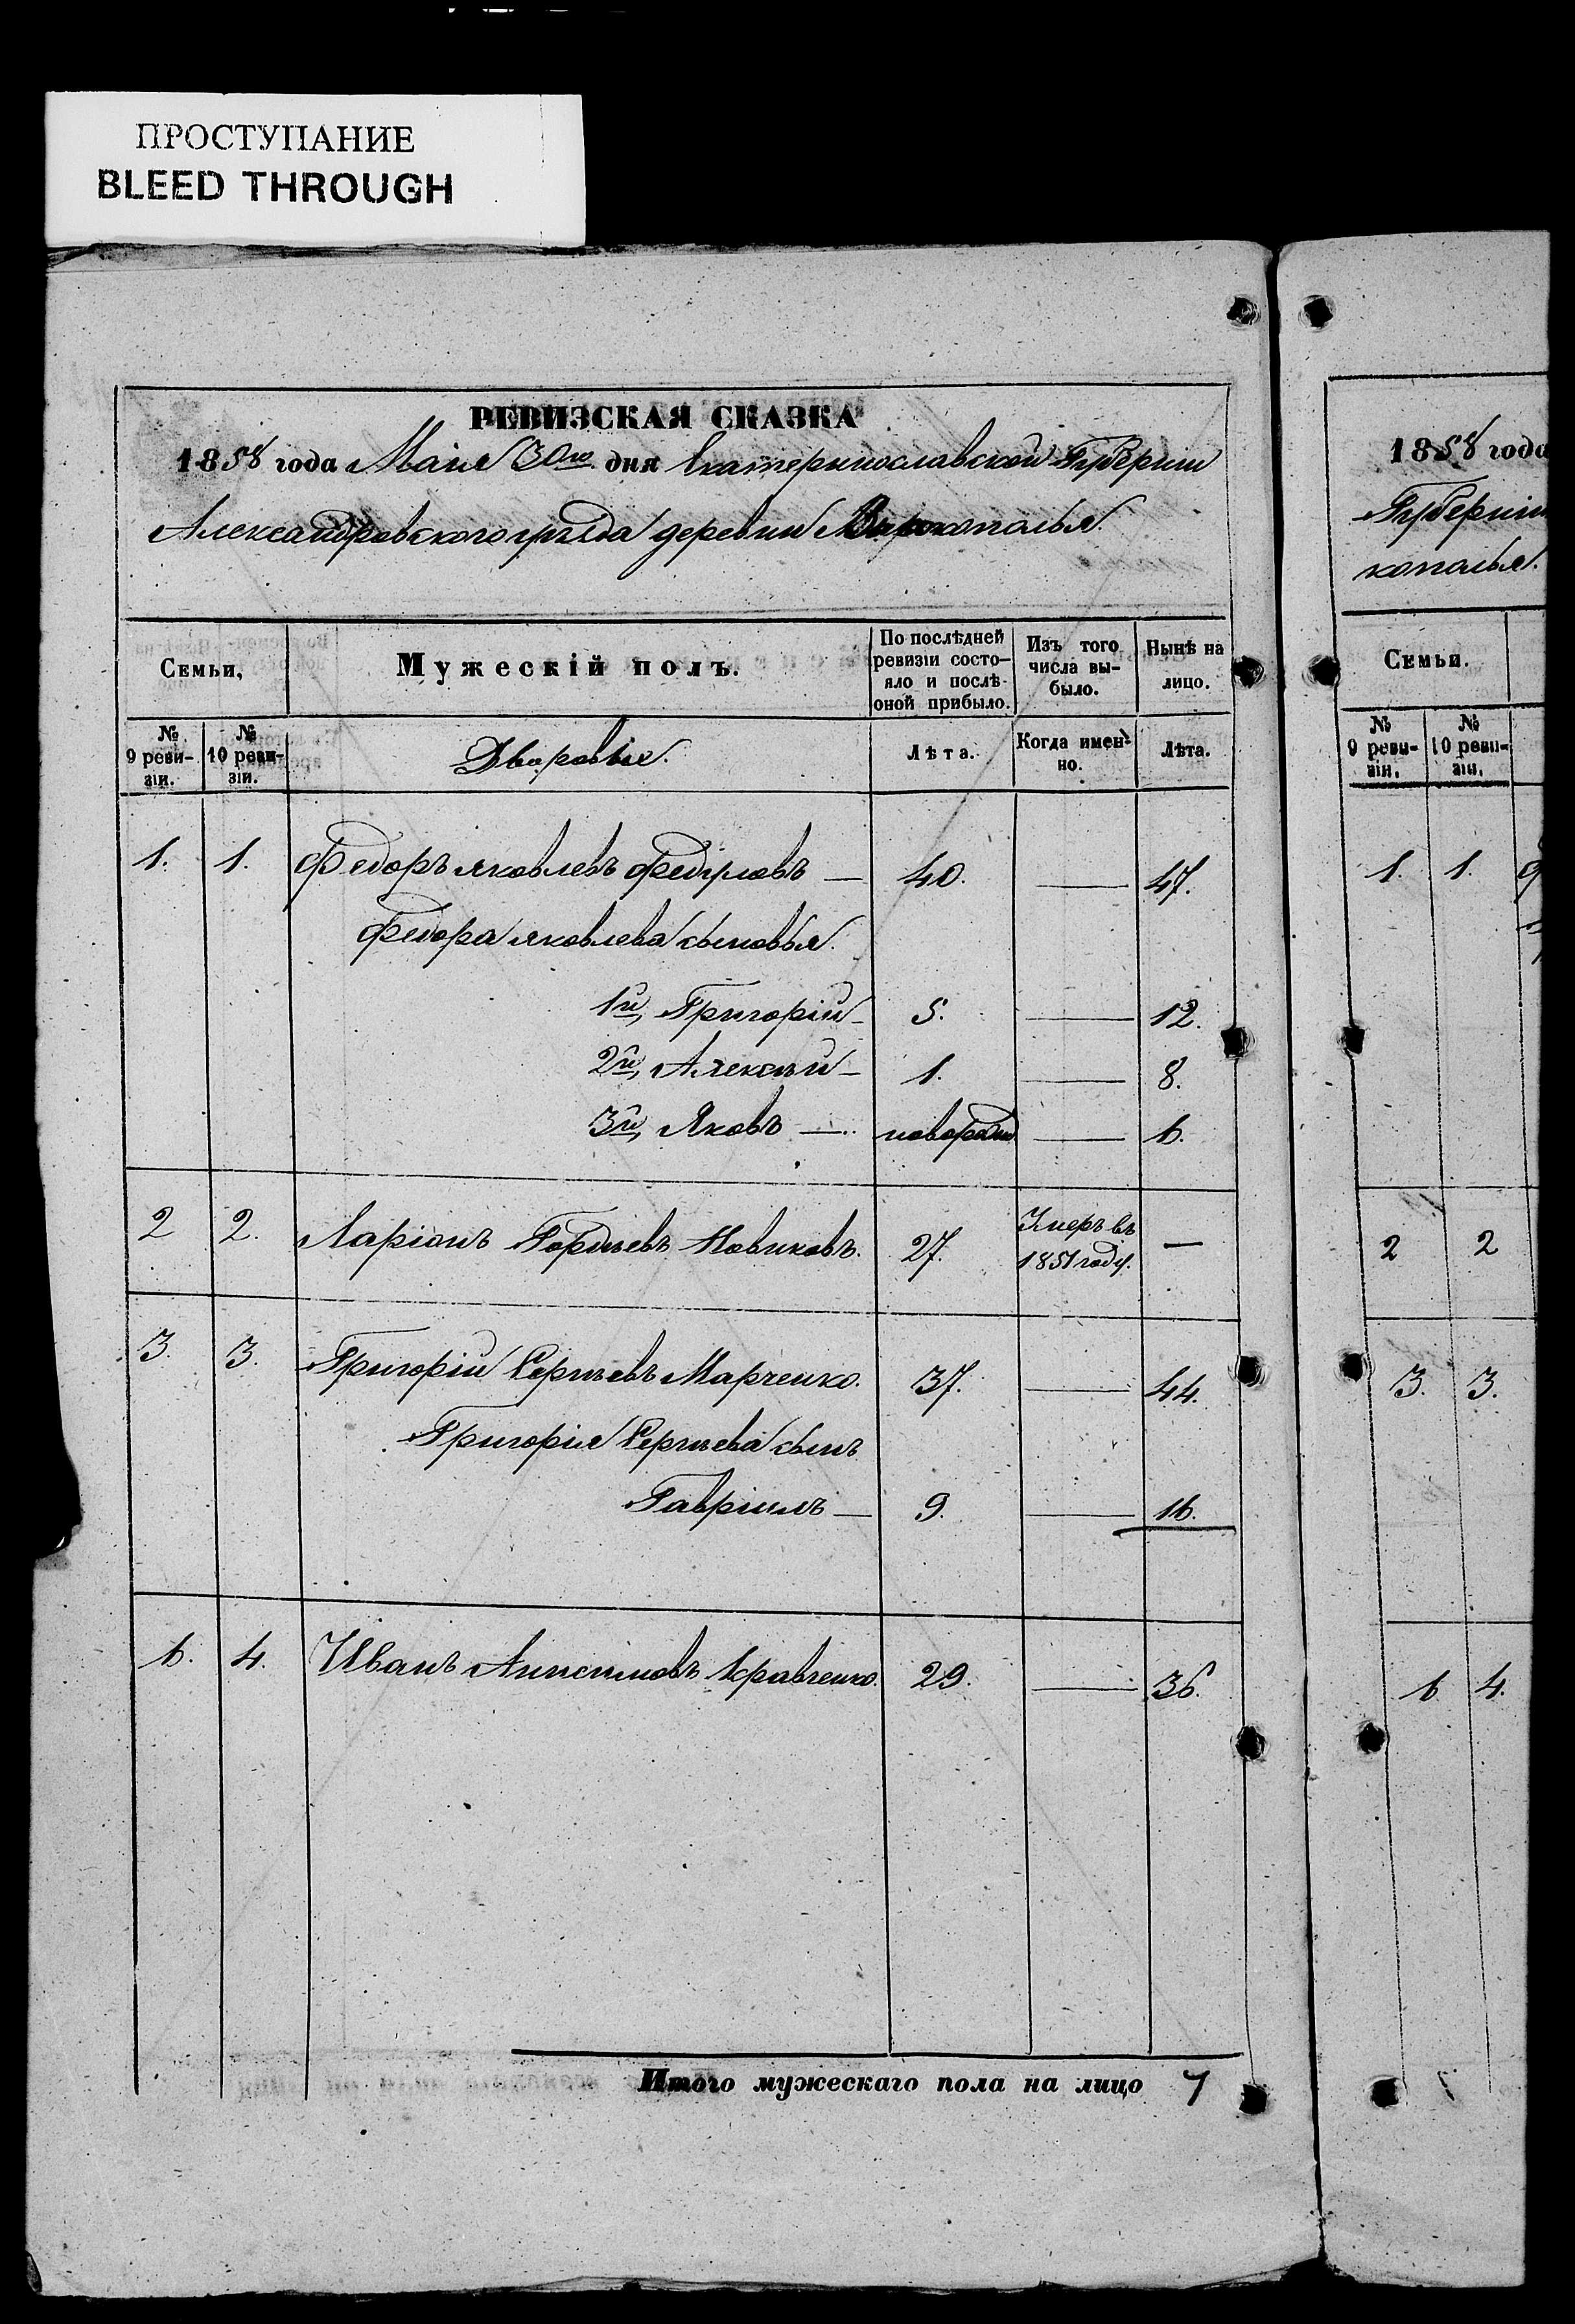 ПРОСТУПАНИЕ
BLEED THROUGH
РЕВИЗСКАЯ СКАЗКА
1858 года Маія 30го дня Екатеринославской Губерніи
Александровского уѣзда деревни
Семьи,
Мужескій полъ.
По послѣдней ревизіи состо-яло и послѣ-оной прибыло.
Изъ того числа вы-было.
Нынѣ на лицо.
№ 9 реви-зіи.
№ 10 реви-зіи.
Дворовые.
Лѣта.
Когда имен-но.
Лѣта.
1. 1. Федоръ Яковлевъ — 40. — 47.
Федора Яковлева сыновья
1й, Григорій — 5. — 12.
2й, Алексѣй — 1. — 8.
3й, Яковъ — новорожд — 6.
2 2. Ларіонъ Гордѣевъ Новиковъ. 27. Умеръ въ 1851 году. —
3. 3. Григорій Сергѣевъ Марченко. 37. — 44.
Григорія Сергѣева сынъ
Гавріилъ — 9. — 16.
6. 4. Иванъ Анисимовъ Кравченко. 29. — 36.
Итого мужескаго пола на лицо 7
1858 года
Губерніи
копалья.
Семьи.
№ 9 реви-зіи.
№ 10 реви-зіи.
1. 1.
2 2
3. 3.
6 4.